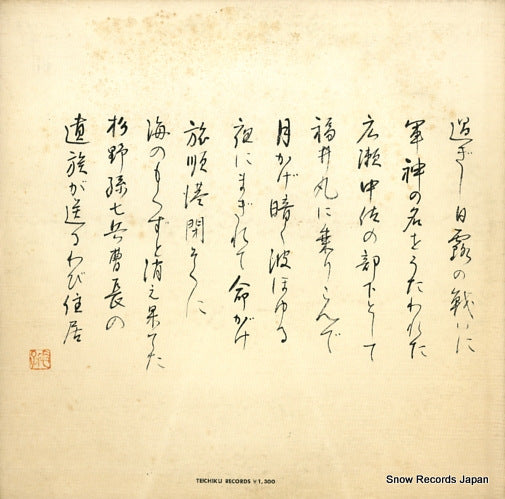 過ぎし日露の戦いに
軍神の名をうたわれた
広瀬中佐の部下として
福井丸に乗りこんで
月かげ暗く波ほゆる
夜にまぎれて命がけ
旅順港閉そくに
海のもくずと消え果てた
杉野孫七兵曹長の
遺族が送るわび住居
TEICHIKU RECORDS ¥1,300
Snow Records Japan